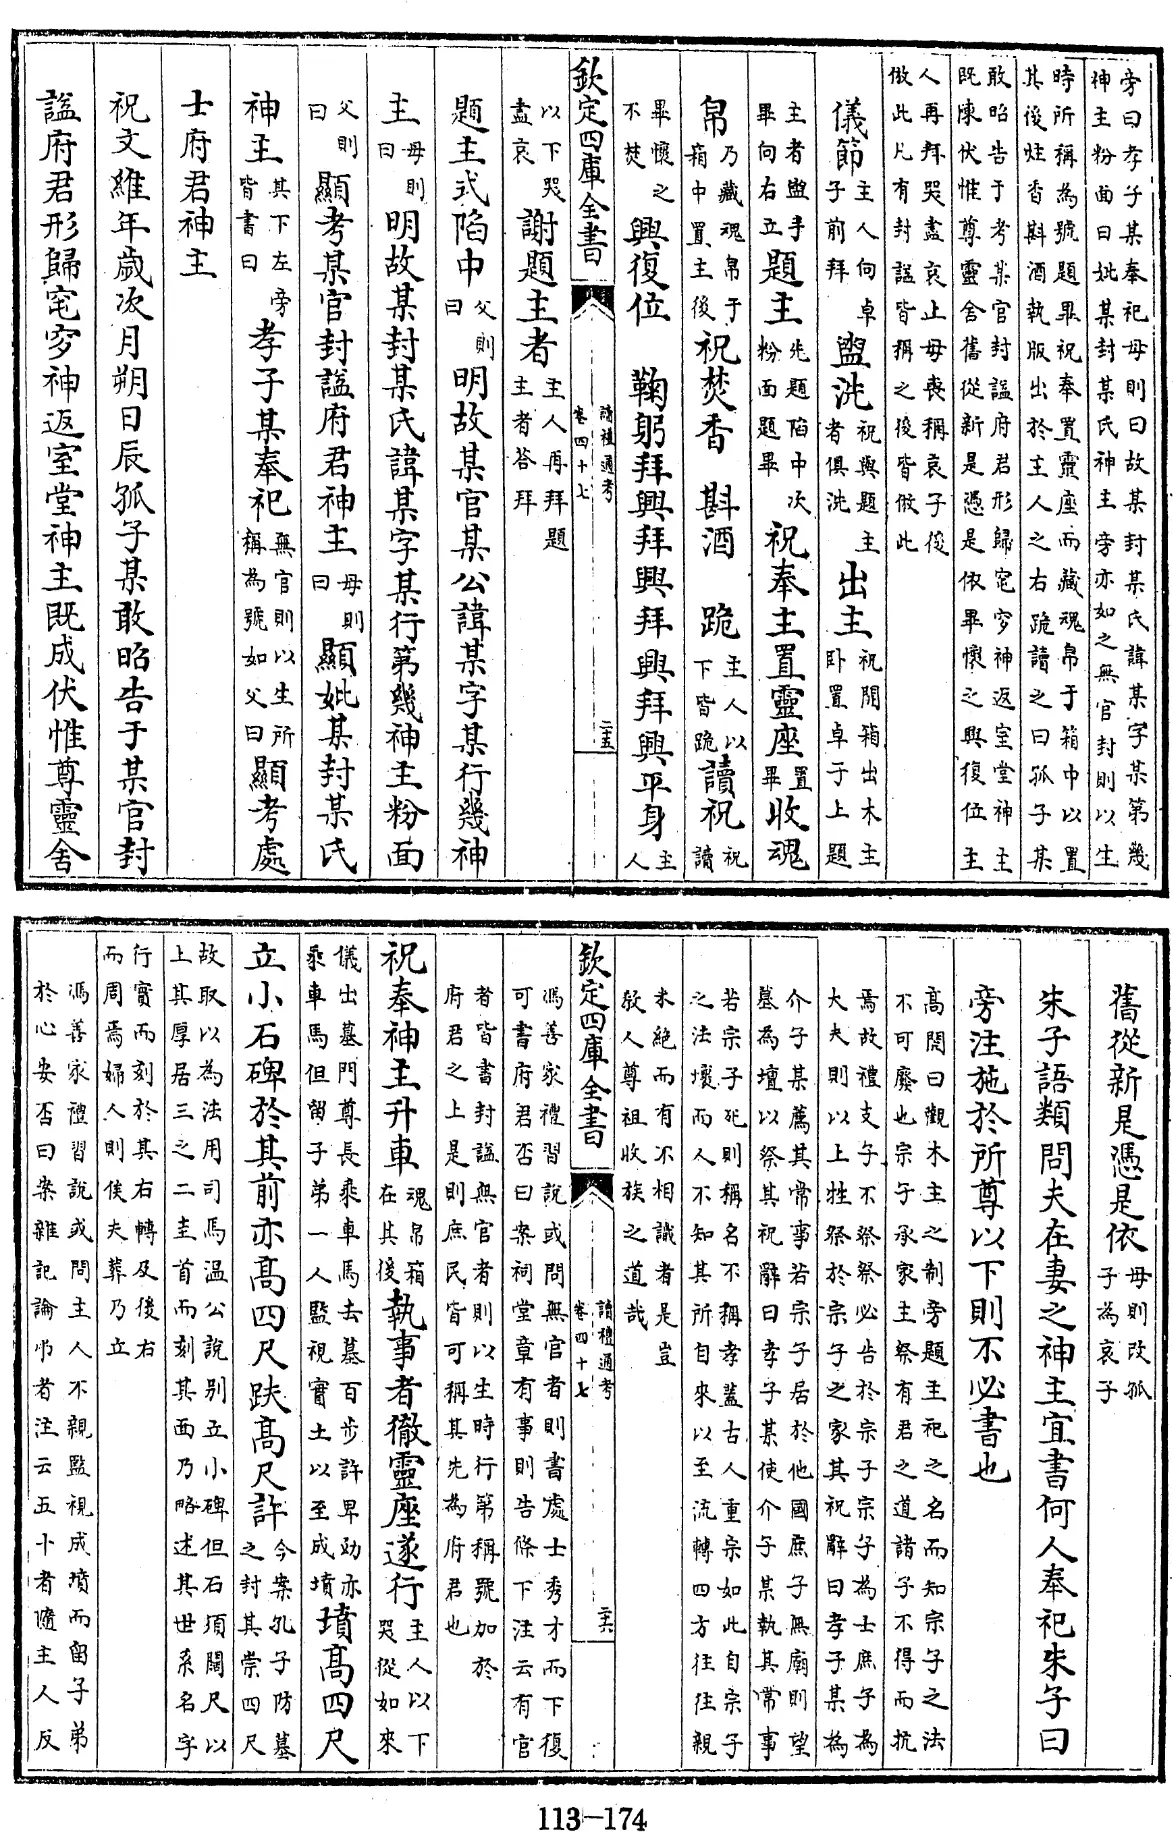 旁曰孝子某奉祀母則曰故某封某氏諱某字某第幾
神主粉面曰妣某封某氏神主旁亦如之無官封則以生
時所稱為號題畢祝奉置靈座而藏魂帛于箱中以置
其後炷香斟酒執版出於主人之右跪讀之曰孤子某
敢昭告于考某官封諡府君形歸窀穸神返室堂神主
既陳伏惟尊靈舍舊從新是憑是依畢懷之興復位主
人再拜哭盡哀止母喪稱哀子後
做此凡有封諡皆稱之後皆做此
儀節主人向卓子前拜盥洗祝與題主者俱洗出主祝開箱出木主卧置卓于上題
主者盥手畢向右立題主先題陷中次粉面題畢祝奉主置靈座置畢收魂
帛乃藏魂帛于箱中置主後祝焚香　斟酒　跪主人以下皆跪讀祝祝讀
畢懷之不焚興復位　鞠躬拜興拜興拜興拜興平身主人
欽定四庫全書
讀禮通考
卷四十七
二十五
以下哭盡哀謝題主者主人再拜題主者答拜
題主式陷中父則曰明故某官某公諱某字某行幾神
主母則曰明故某封某氏諱某字某行第幾神主粉面
父則曰顯考某官封諡府君神主母則曰顯妣某封某氏
神主其下左旁皆書曰孝子某奉祀無官則以生所稱為號如父曰顯考處
士府君神主
祝文維年歲次月朔日辰孤子某敢昭告于某官封
諡府君形歸窀穸神返室堂神主既成伏惟尊靈舍
舊從新是憑是依母則改孤子為哀子
朱子語類問夫在妻之神主宜書何人奉祀朱子曰
旁注施於所尊以下則不必書也
高閌曰觀木主之制旁題主祀之名而知宗子之法
不可廢也宗子承家主祭有君之道諸子不得而抗
焉故禮支子不祭祭必告於宗子宗子為士庶子為
大夫則以上牲祭於宗子之家其祝辭曰孝子某為
介子某薦其常事若宗子居於他國庶子無廟則望
墓為壇以祭其祝辭曰孝子某使介子某執其常事
若宗子死則稱名不稱孝蓋古人重宗如此自宗子
之法壞而人不知其所自來以至流轉四方往往親
未絕而有不相識者是豈
教人尊祖收族之道哉
欽定四庫全書
讀禮通考
卷四十七
二十六
馮善家禮習說或問無官者則書處士秀才而下復
可書府君否曰案祠堂章有事則告條下注云有官
者皆書封諡無官者則以生時行第稱號加於
府君之上是則庶民皆可稱其先為府君也
祝奉神主升車魂帛箱在其後執事者徹靈座遂行主人以下哭從如來
儀出墓門尊長乘車馬去墓百步許卑幼亦乘車馬但留子弟一人監視實土以至成墳墳高四尺
立小石碑於其前亦高四尺趺高尺許今案孔子防墓之封其崇四尺
故取以為法用司馬温公說別立小碑但石須闊尺以
上其厚居三之二圭首而刻其面乃略述其世系名字
行實而刻於其右轉及後右
而周焉婦人則俟夫葬乃立
馮善家禮習說或問主人不親監視成墳而留子弟
於心安否曰案雜記論弔者注云五十者隨主人反
113-174